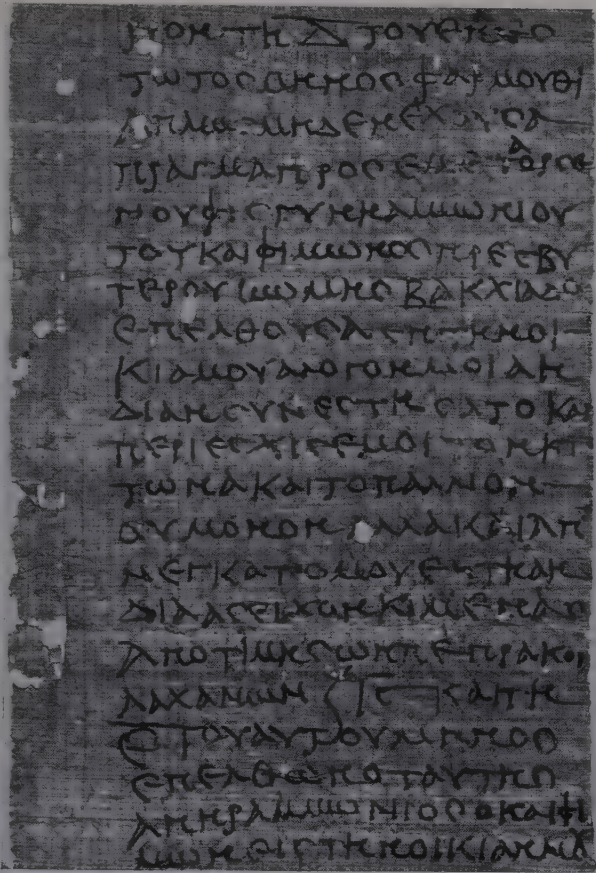 μον τῇ δ τοῦ ἐνεστο
τωτος μηνος Φαρμουθι
απλως μηδεν εχουσα
πραγμα προς εμε Ταορσε
νουφις γυνη Αμμωνιου
του και Φιμωνος πρεσβυ
τερου κωμης Βακχιαδο
επελθουσα εν τη οι
κια μου αλογον μοι αη
διαν συνεστησατο και
περιεσχισε μοι τον κι
τωνα και το παλλιον
ου μονον αλλα και απ
νεγκατο μου εν τη αη
δια ας ειχων κιμενας
απο τιμης ων πεπρακον
λαχανων και τη
ε του αυτου μηνος
επελθων ο ταυτης
ανηρ Αμμωνιος ο και Φι
μων εις την οικιαν μου